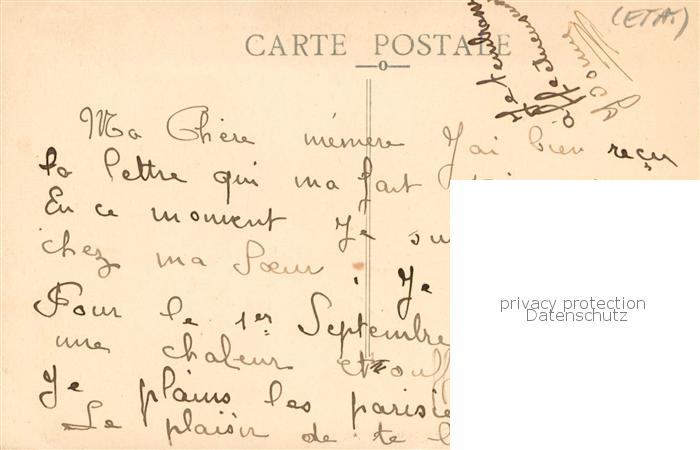 (ETAT)
CARTE POSTALE
Je t'embrasse
affectueusement
Yvonne
Ma Chère mémère J'ai bien reçu
ta lettre qui ma fait
En ce moment Je
chez ma Sœur. Je
Pour le 1er Septembre
une chaleur
Je plains les
Le plaisir de te
privacy protection
Datenschutz